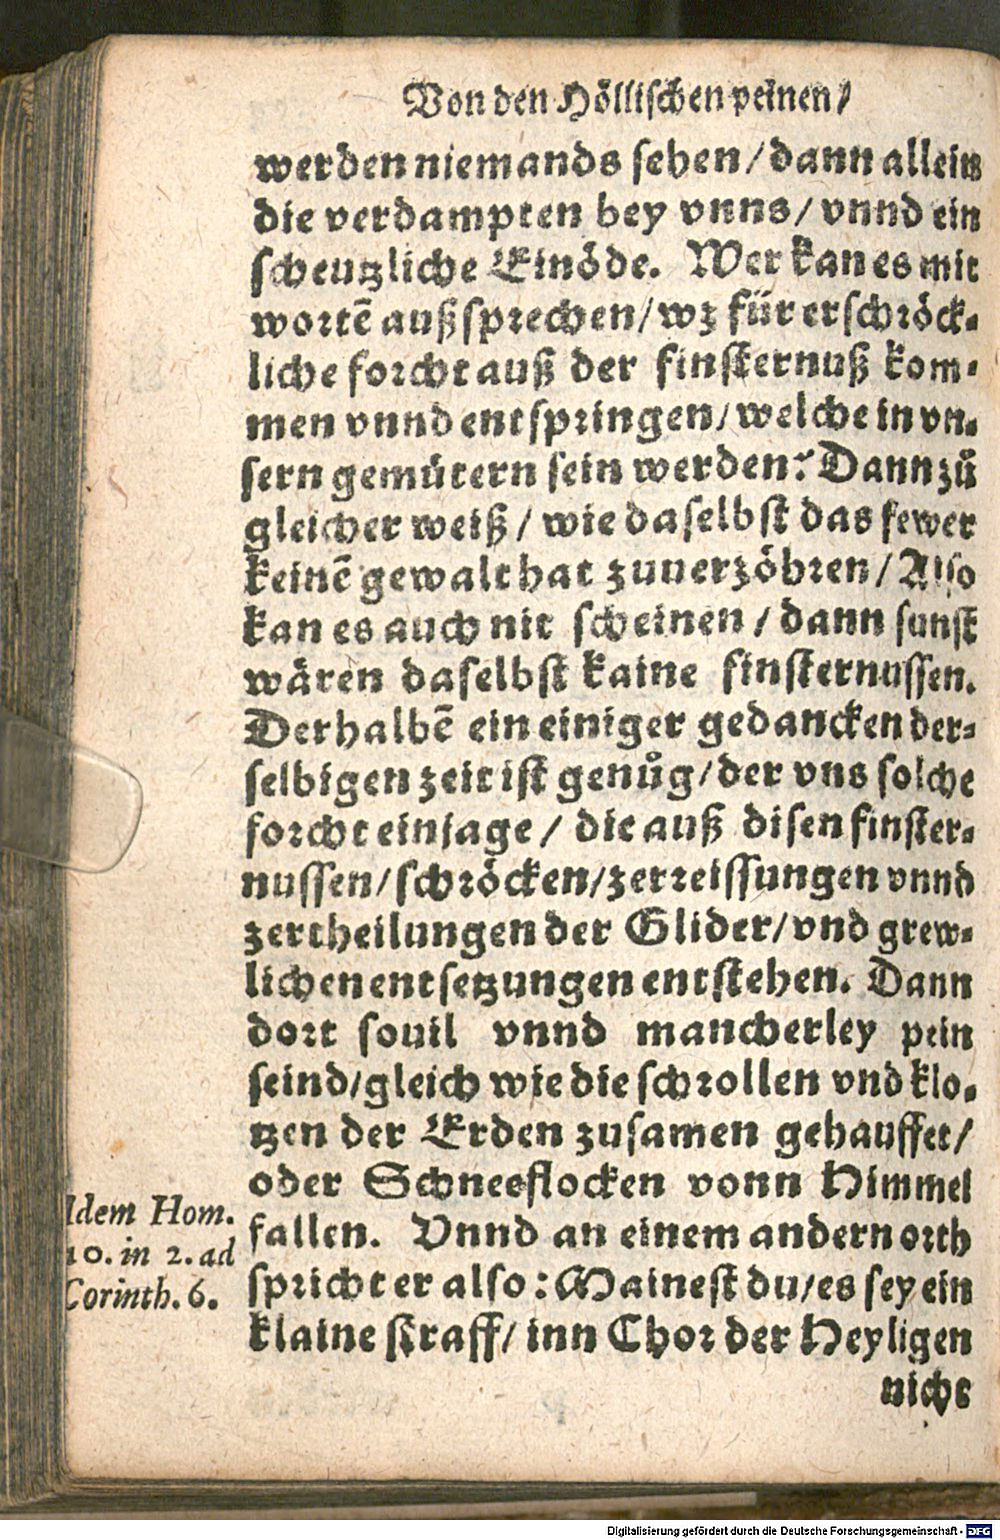 Von den Höllischen peinen/
werden niemands sehen/dann allein
die verdampten bey vnns/vnnd ein
scheutzliche Einöde. Wer kan es mit
wortē außsprechen/wz für erschröck-
liche forcht auß der finsternuß kom-
men vnnd entspringen/welche in vn-
sern gemütern sein werden? Dann zů
gleicher weiß/wie daselbst das fewer
keinē gewalt hat zuuerzöhren/Also
kan es auch nit scheinen/dann sunst
wären daselbst kaine finsternussen.
Derhalbē ein einiger gedancken der-
selbigen zeit ist genůg/der vns solche
forcht einjage/die auß disen finster-
nussen/schröcken/zerreissungen vnnd
zertheilungen der Glider/vnd grew-
lichen entsetzungen entstehen. Dann
dort souil vnnd mancherley pein
seind/gleich wie die schrollen vnd klo-
tzen der Erden zusamen gehauffet/
oder Schneeflocken vonn Himmel
fallen. Vnnd an einem andern orth
spricht er also: Mainest du/es sey ein
klaine straff/inn Chor der Heyligen
nicht
Idem Hom.
10. in 2. ad
Corinth. 6.
Digitalisierung gefördert durch die Deutsche Forschungsgemeinschaft - DFG